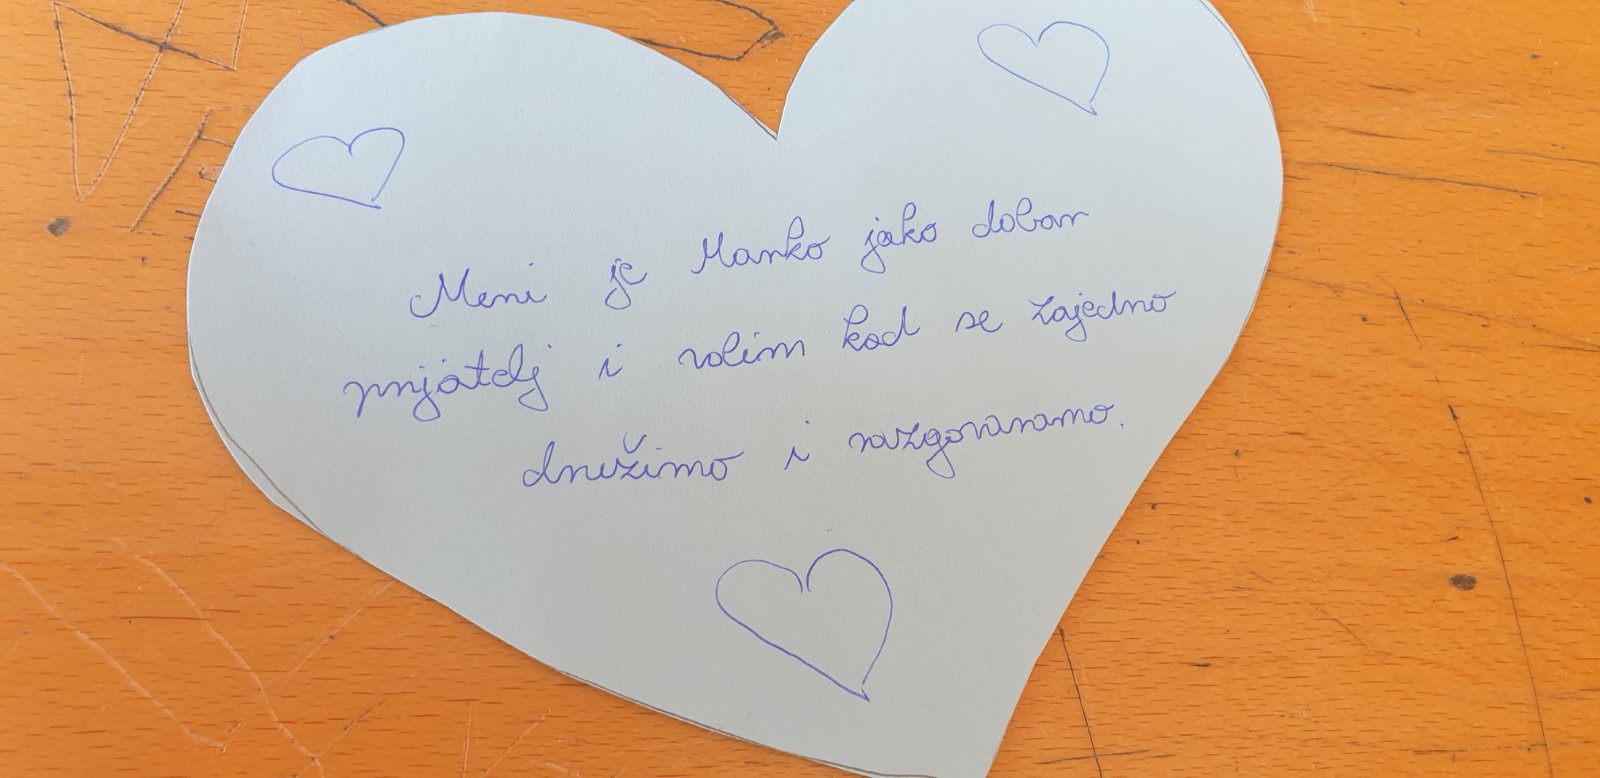 Meni je Marko jako dobar
prijatelj i volim kad se zajedno
družimo i razgovaramo.